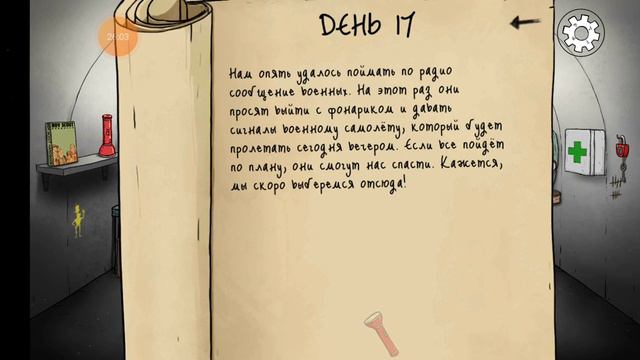 26:03
ДЕНЬ 17
Нам опять удалось поймать по радио
сообщение военных. На этот раз они
просят выйти с фонариком и давать
сигналы военному самолёту, который будет
пролетать сегодня вечером. Если все пойдёт
по плану, они смогут нас спасти. Кажется,
мы скоро выберемся отсюда!